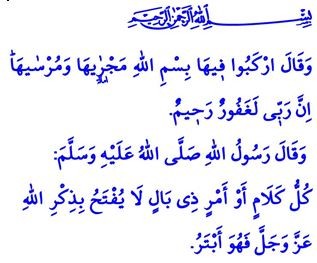 بِسْمِ اللّٰهِ الرَّحْمٰنِ الرَّحِيمِ
وَقَالَ ارْكَبُوا فٖيهَا بِسْمِ اللّٰهِ مَجْرٰۭيهَا وَمُرْسٰيهَاۜ
اِنَّ رَبّٖى لَغَفُورٌ رَحٖيمٌ.
وَقَالَ رَسُولُ اللّٰهِ صَلَّى اللّٰهُ عَلَيْهِ وَسَلَّمَ:
كُلُّ كَلَامٍ أَوْ أَمْرٍ ذِى بَالٍ لَا يُفْتَحُ بِذِكْرِ اللّٰهِ
عَزَّ وَجَلَّ فَهُوَ أَبْتَرُ.